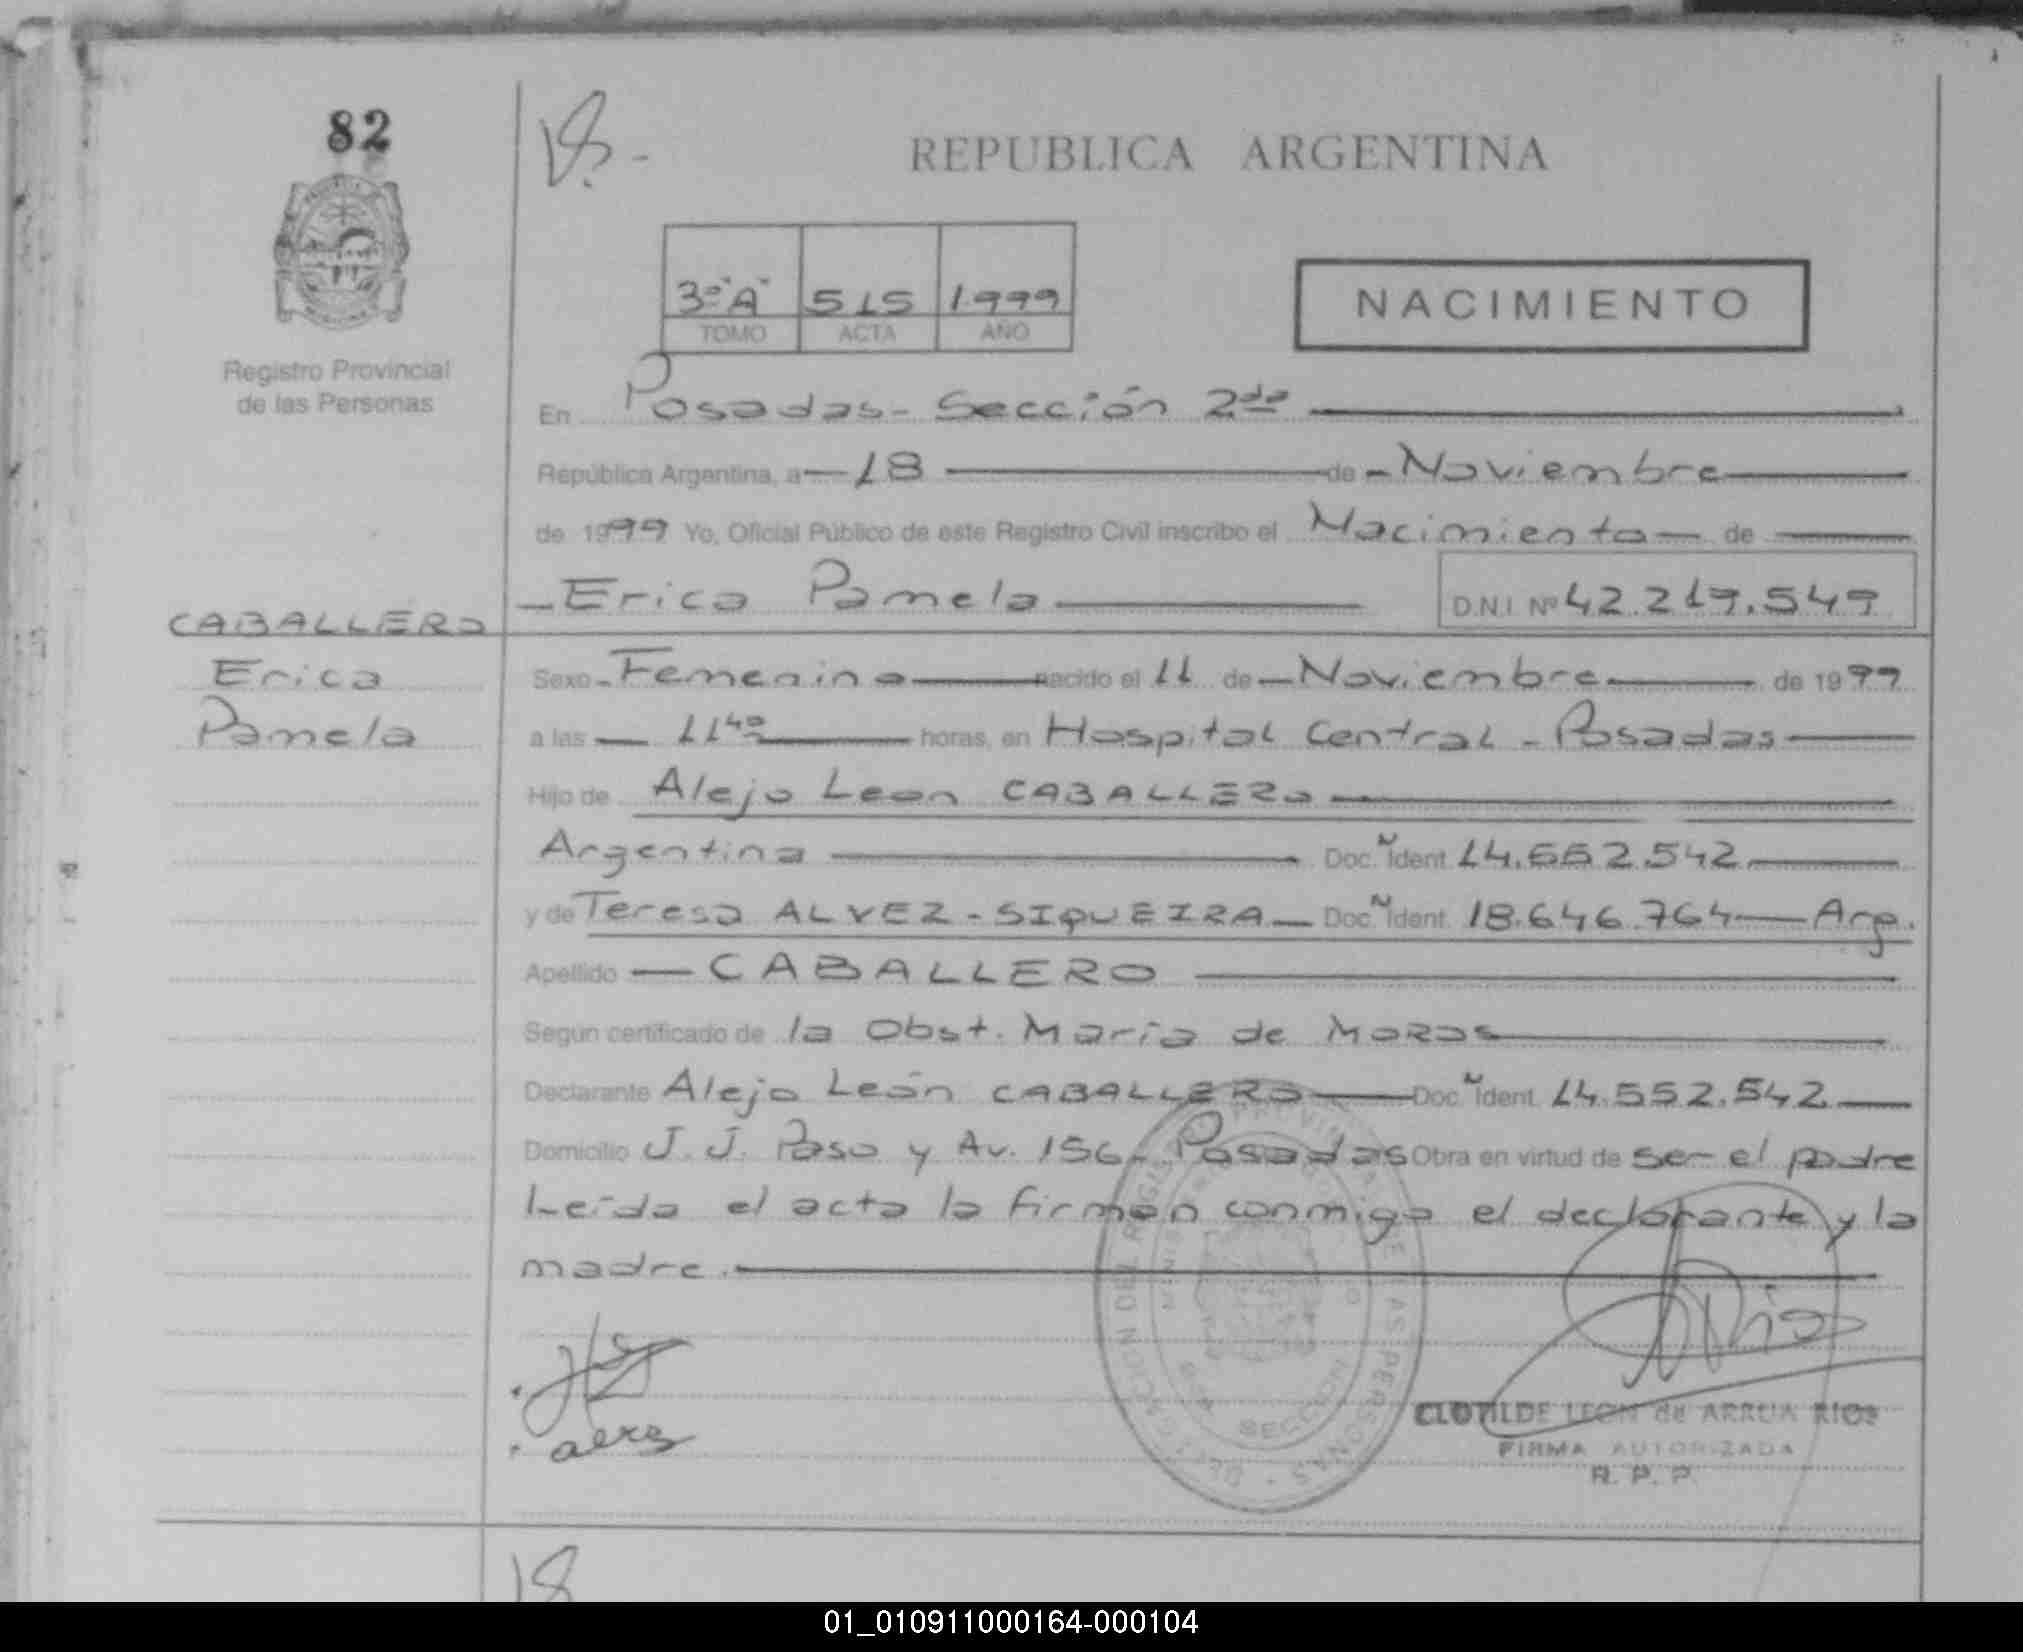 82
REPUBLICA ARGENTINA
3º "A" 515 1.999
TOMO ACTA AÑO
NACIMIENTO
Registro Provincial
de las Personas
En Posadas - Sección 2da
República Argentina, a 18 de Noviembre
de 1999 Yo, Oficial Público de este Registro Civil inscribo el Nacimiento de
Erica Pamela D.N.I. Nº 42.219.549
CABALLERO
Erica
Pamela
Sexo Femenino nacido el 11 de Noviembre de 1999
a las 11 40 horas, en Hospital Central - Posadas
Hijo de Alejo Leon CABALLERO
Argentina Doc. N Ident. 14.552.542
y de Teresa ALVEZ - SIQUEIRA Doc. N Ident. 18.646.764 Arg.
Apellido CABALLERO
Según certificado de la Obst. María de MORAS
Declarante Alejo León CABALLERO Doc. N Ident. 14.552.542
Domicilio J. J. Paso y Av. 156 - Posadas Obra en virtud de ser el padre
Leída el acta la firman conmigo el declarante y la
madre.
CLOTILDE LEON de ARRUA RIOS
FIRMA AUTORIZADA
R. P. P.
18
01_010911000164-000104